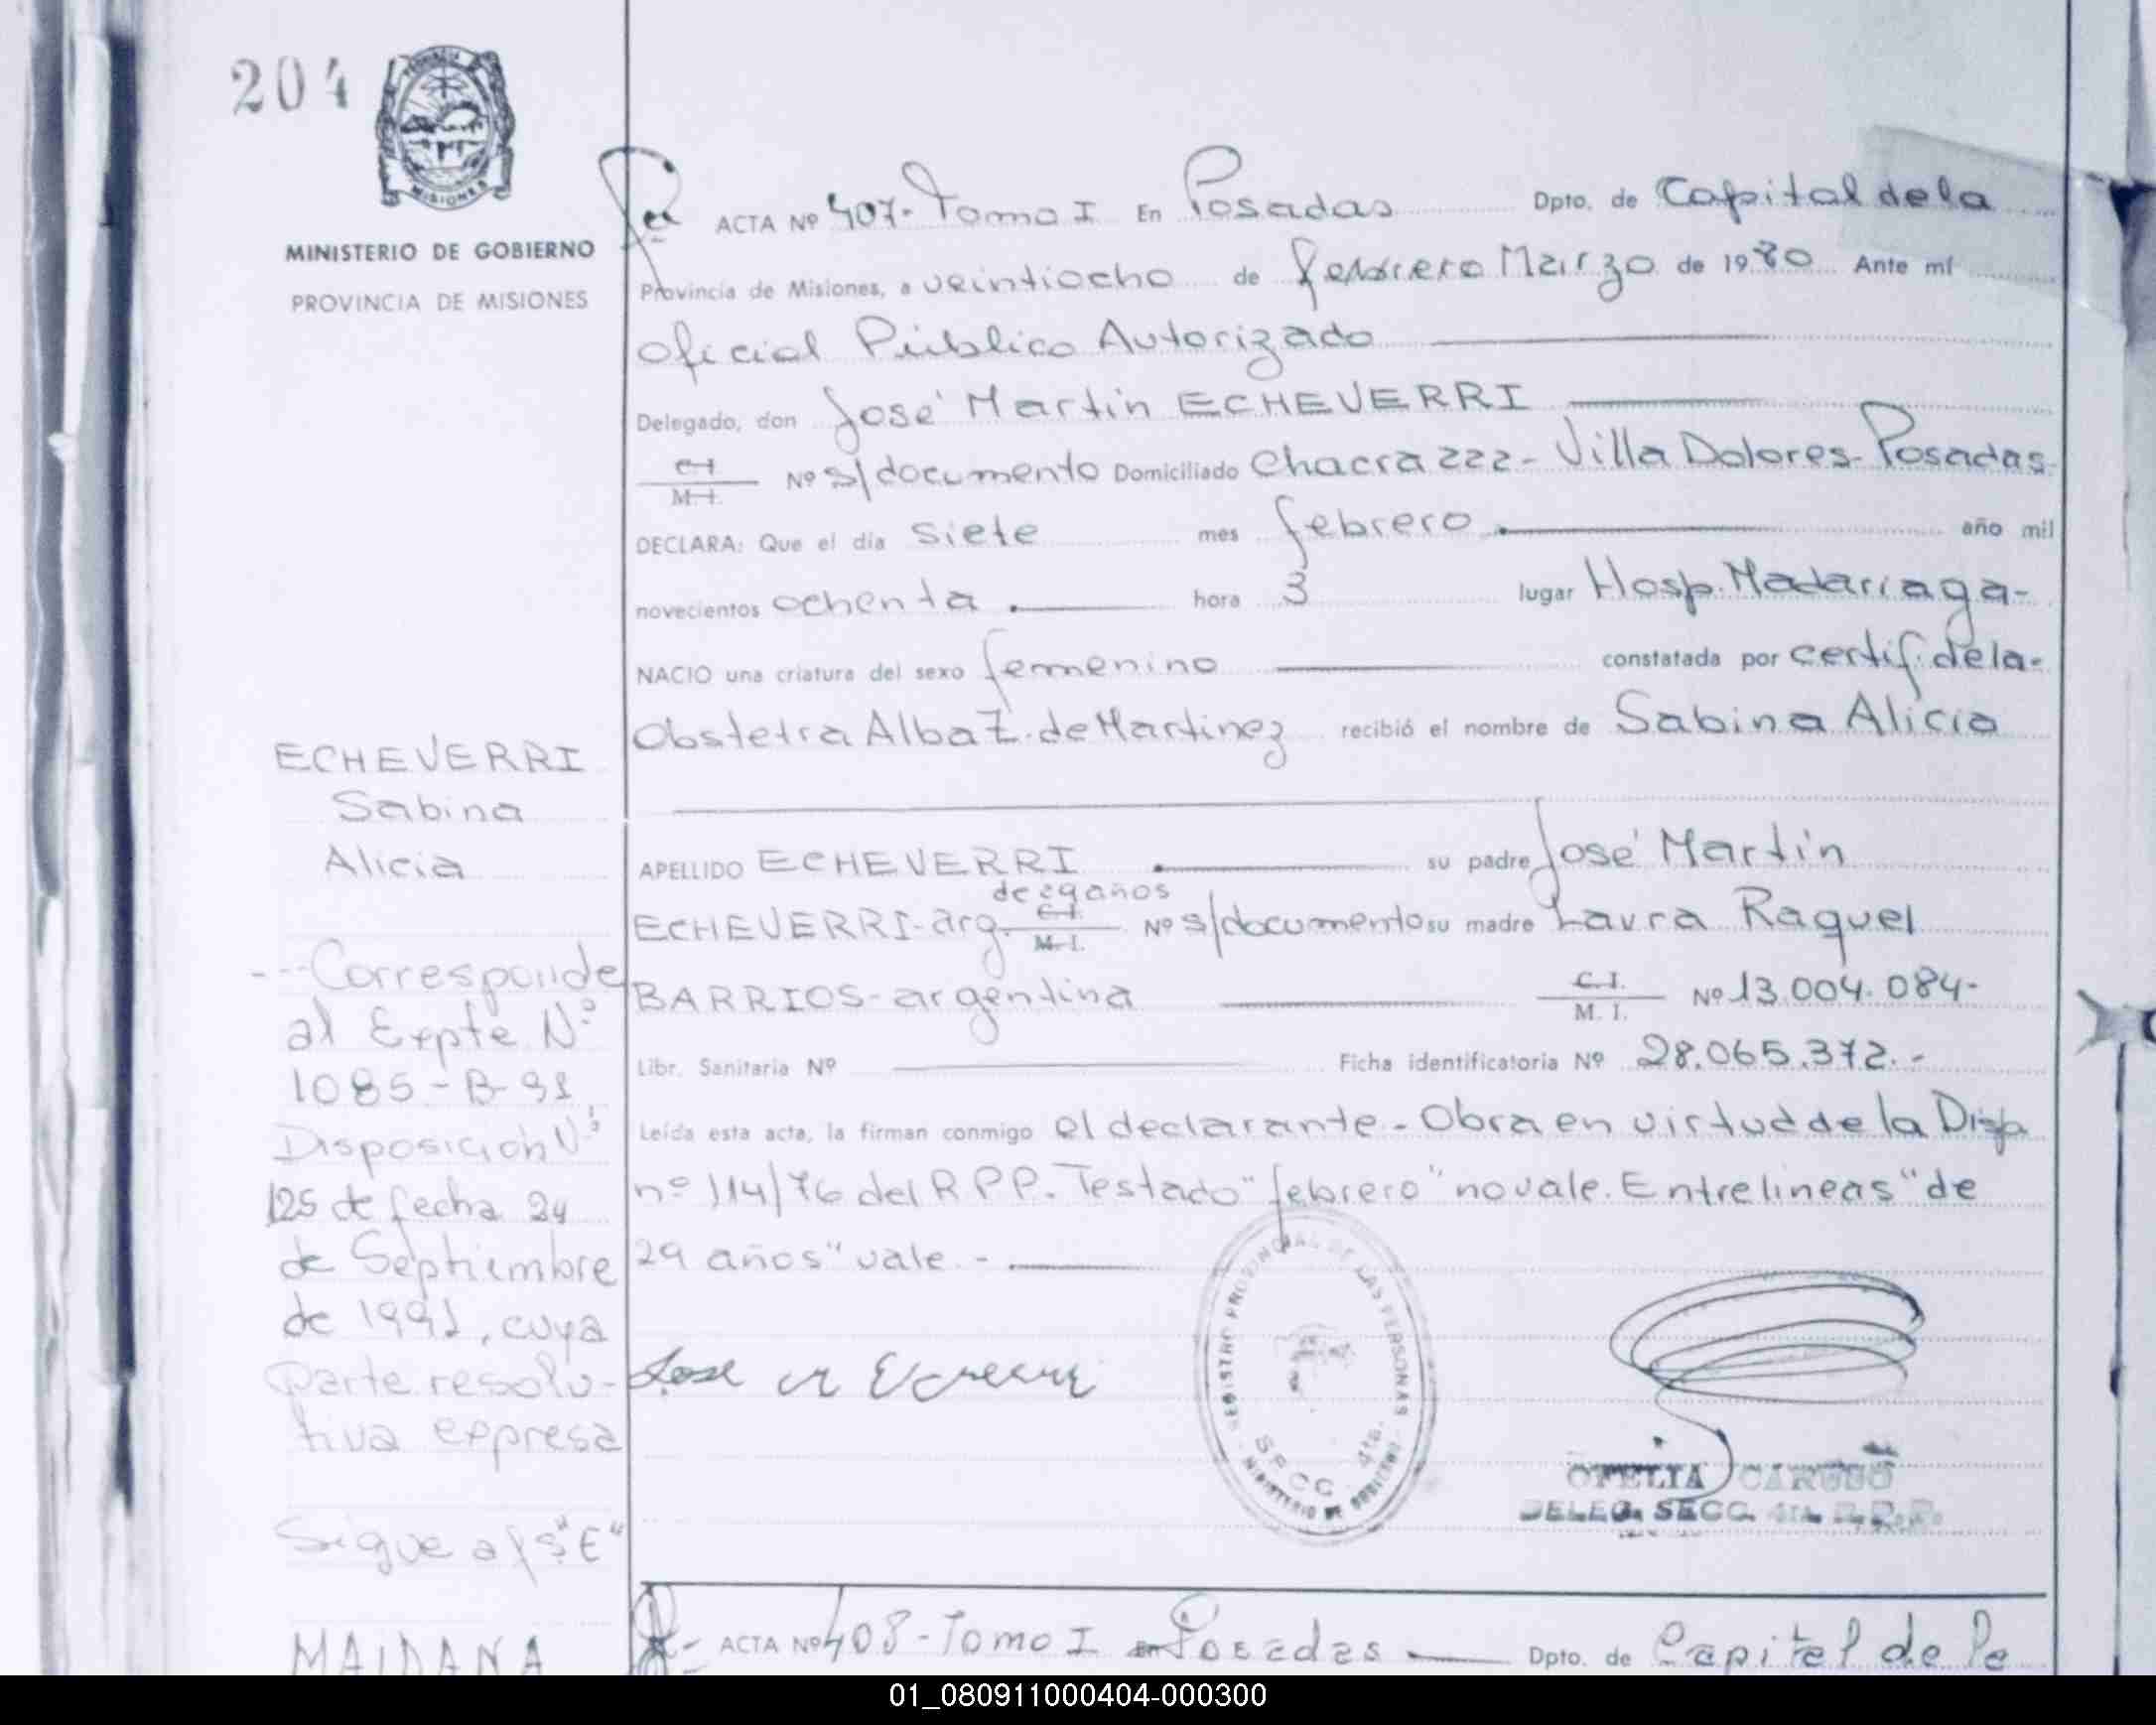 204
MISIONES
MINISTERIO DE GOBIERNO
PROVINCIA DE MISIONES
ECHEVERRI
Sabina
Alicia
--- Corresponde
al Expte Nº
1085-B-91
Disposición Nº
125 de fecha 24
de Septiembre
de 1991, cuya
parte resolu-
tiva expresa
Sigue a fs "E"
MAIDANA
ACTA Nº 407- Tomo I En Posadas Dpto. de Capital de la
Provincia de Misiones, a veintiocho de febrero Marzo de 1980 Ante mí
Oficial Público Autorizado
Delegado, don José Martín ECHEVERRI
C.I.
M.I. Nº s/documento Domiciliado Chacra 222- Villa Dolores- Posadas
DECLARA: Que el día siete mes febrero año mil
novecientos ochenta hora 3 lugar Hosp. Madariaga-
NACIO una criatura del sexo femenino constatada por certif. de la-
Obstetra Alba Z. de Martinez recibió el nombre de Sabina Alicia
APELLIDO ECHEVERRI su padre José Martín
de 29 años
ECHEVERRI-arg. C.I. M.I. Nº s/documento su madre Laura Raquel
BARRIOS-argentina C.I. M.I. Nº 13.004.084-
Libr. Sanitaria Nº Ficha identificatoria Nº 28.065.372.-
Leída esta acta, la firman conmigo el declarante- Obra en virtud de la Disp
nº 114/76 del R P P. Testado "febrero" no vale. Entrelineas "de
29 años" vale.-
REGISTRO PROVINCIAL DE LAS PERSONAS
SECC. 4ta.
MINISTERIO DE GOBIERNO
OFELIA CARUSO
DELEG. SECC. 4ta R.P.P.
ACTA Nº 408-Tomo I En Posadas Dpto. de Capital de la
01_080911000404-000300